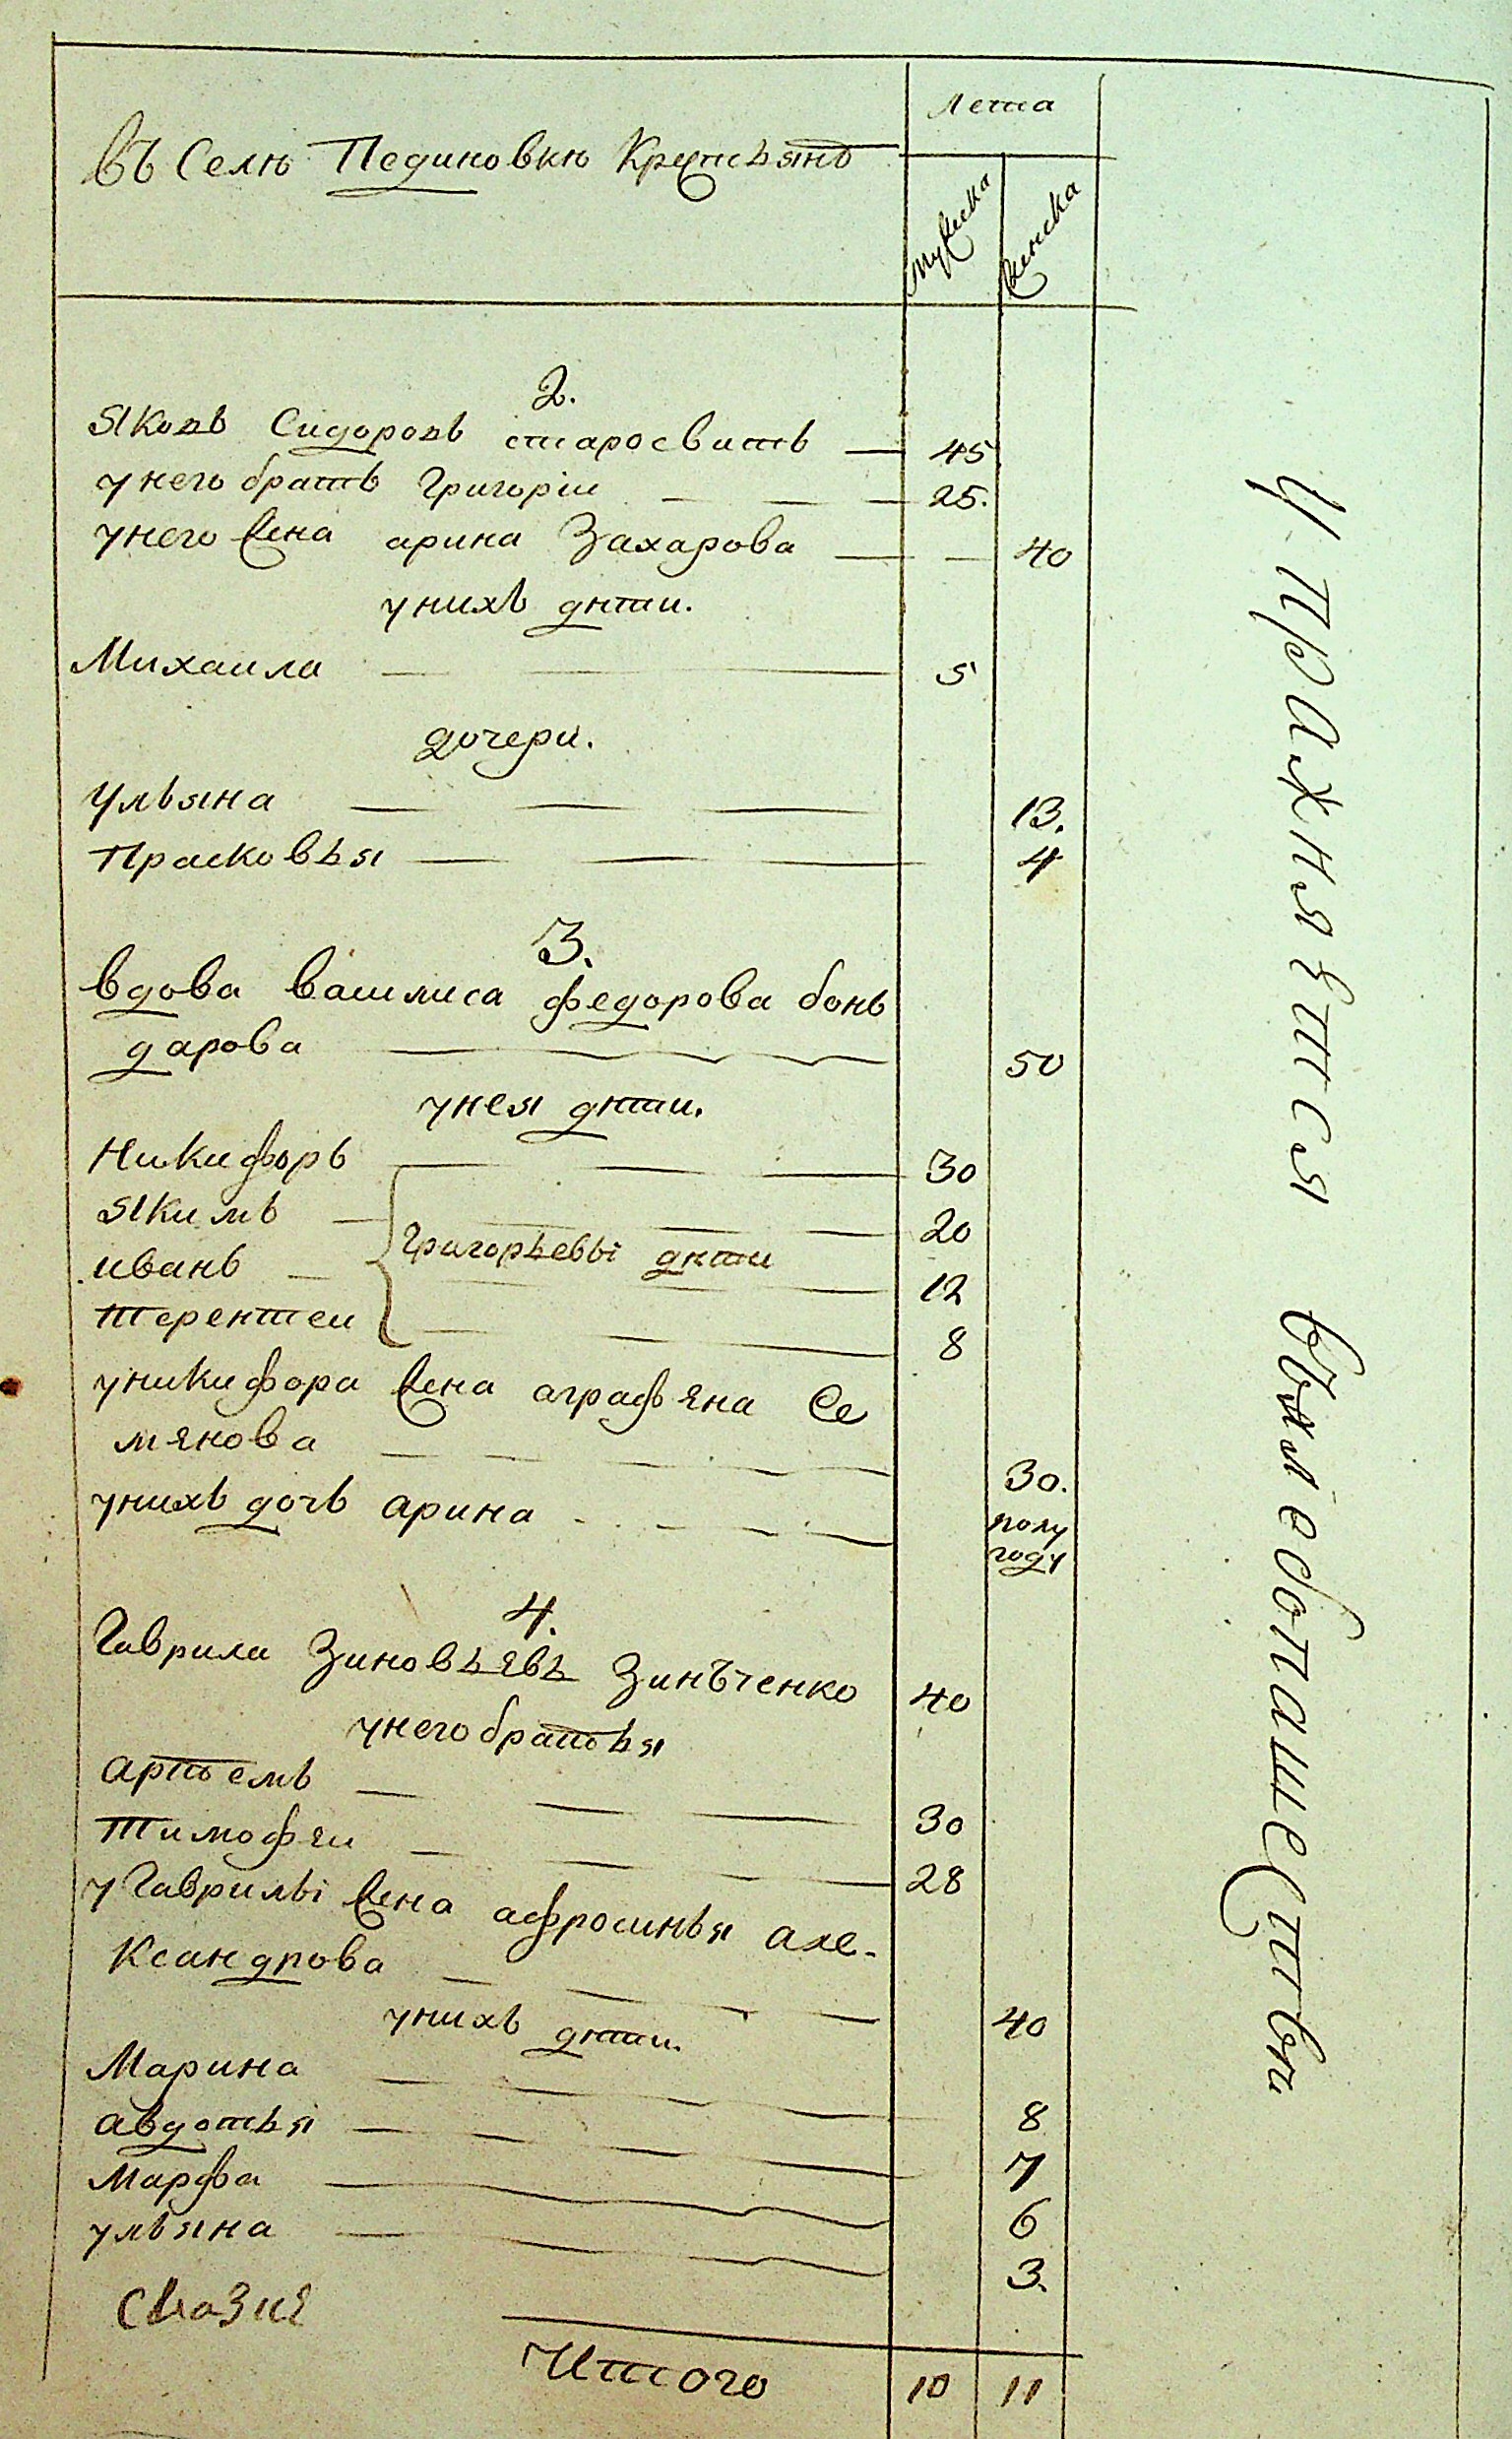 Въ Селѣ Пединовкѣ Крестьянъ
Лета
мужеска
женска
2.
Яковъ Сидоровъ старосвитъ 45
у него братъ Григоріи 25.
у него жена арина Захарова 40
у нихъ дѣти.
Михаила 5
дочери.
Ульяна 13.
Прасковья 4
3.
вдова василиса федорова бонь
дарова 50
у нея дѣти.
Никифоръ 30
Якимъ 20
Григорьевы дѣти
иванъ 12
терентеи 8
у никифора жена аграфѣна Се
мѣнова 30.
у нихъ дочь арина полу
году
4.
Гаврила Зиновьѣвъ Зинъченко 40
у него братья
артьемъ 30
тимофѣи 28
у Гаврилы жена афросинья але-
ксандрова 40
у нихъ дѣти.
Марина 8
авдотья 7
марфа 6
ульяна 3.
Итого 10 11